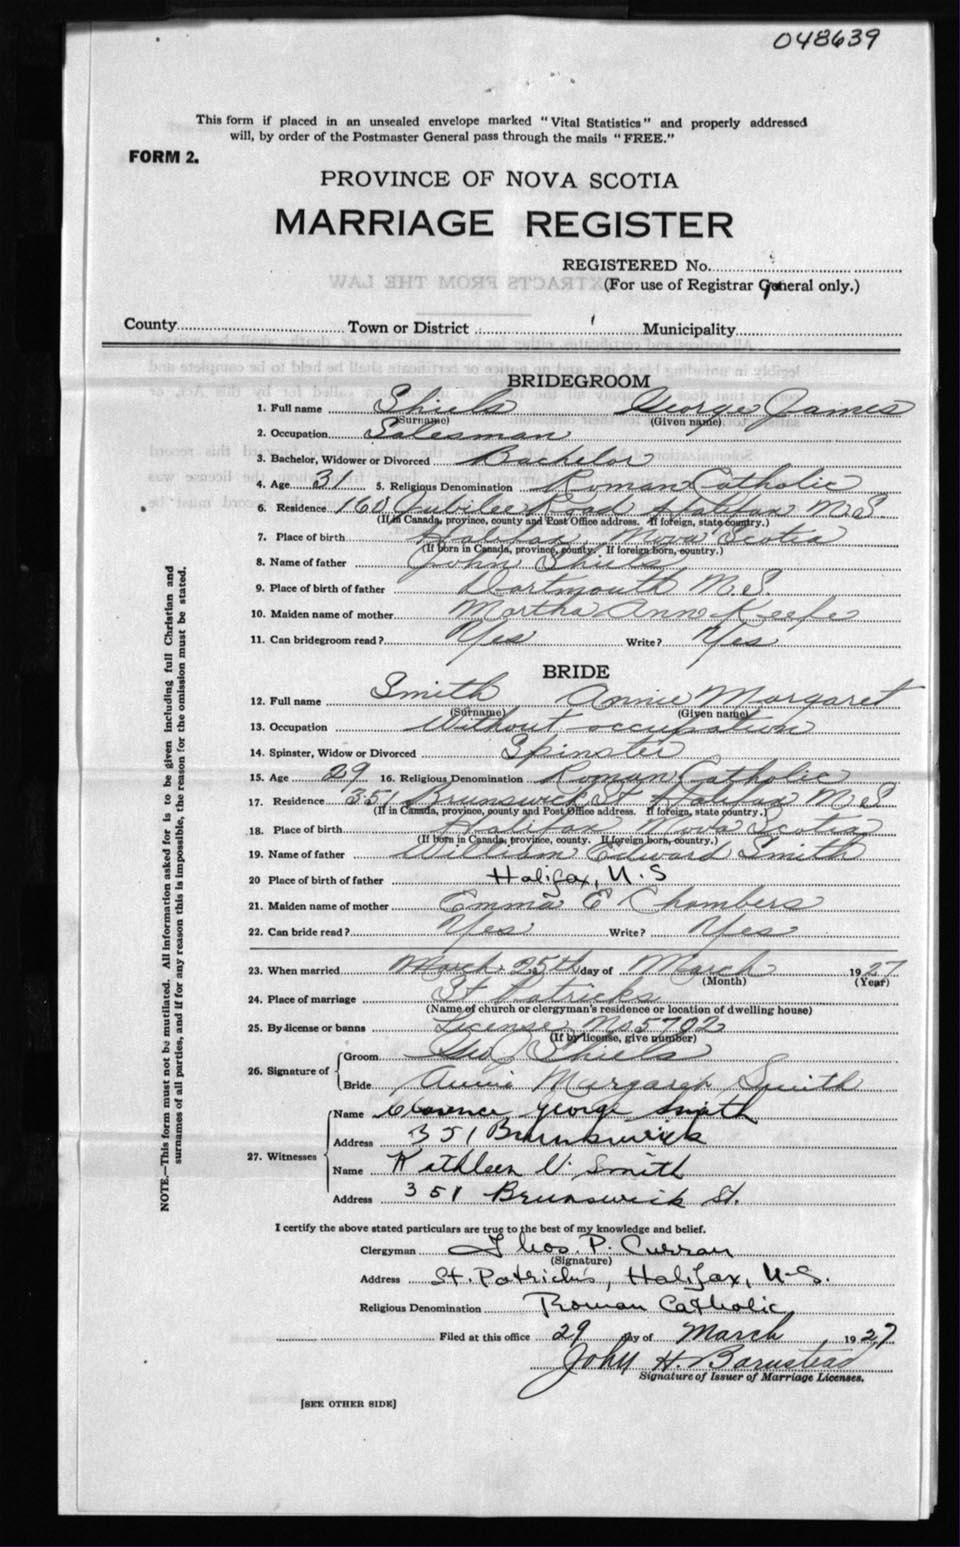 048639
This form if placed in an unsealed envelope marked "Vital Statistics" and properly addressed
will, by order of the Postmaster General pass through the mails "FREE."
FORM 2.
PROVINCE OF NOVA SCOTIA
MARRIAGE REGISTER
REGISTERED No.
(For use of Registrar General only.)
County Town or District Municipality
BRIDEGROOM
1. Full name Shiels George James
(Surname) (Given name)
2. Occupation Salesman
3. Bachelor, Widower or Divorced Bachelor
4. Age 31 5. Religious Denomination Roman Catholic
6. Residence 160 Jubilee Road Halifax N.S.
(If in Canada, province, county and Post Office address. If foreign, state country.)
7. Place of birth Halifax, Nova Scotia
(If born in Canada, province, county. If foreign born, country.)
8. Name of father John Shiels
9. Place of birth of father Dartmouth N.S.
10. Maiden name of mother Martha Ann Keefe
11. Can bridegroom read? Yes Write? Yes
BRIDE
12. Full name Smith Annie Margaret
(Surname) (Given name)
13. Occupation Without occupation
14. Spinster, Widow or Divorced Spinster
15. Age 29 16. Religious Denomination Roman Catholic
17. Residence 351 Brunswick St Halifax N.S
(If in Canada, province, county and Post Office address. If foreign, state country.)
18. Place of birth Halifax Nova Scotia
(If born in Canada, province, county. If foreign born, country.)
19. Name of father William Edward Smith
20 Place of birth of father Halifax, N.S
21. Maiden name of mother Emma E Chambers
22. Can bride read? Yes Write? Yes
23. When married March 25th day of March 1927
(Month) (Year)
24. Place of marriage St Patricks
(Name of church or clergyman's residence or location of dwelling house)
25. By license or banns License No 5792
(If by license, give number)
26. Signature of Groom Geo J Shiels
Bride Annie Margaret Smith
27. Witnesses Name Clarence George Smith
Address 351 Brunswick
Name Kathleen V. Smith
Address 351 Brunswick St.
I certify the above stated particulars are true to the best of my knowledge and belief.
Clergyman Thos. P. Curran
(Signature)
Address St. Patrick's, Halifax, N.S.
Religious Denomination Roman Catholic
Filed at this office 29 day of March, 1927
John H. Barnstead
Signature of Issuer of Marriage Licenses.
[SEE OTHER SIDE]
NOTE.—This form must not be mutilated. All information asked for is to be given including full Christian and
surnames of all parties, and if for any reason this is impossible, the reason for the omission must be stated.